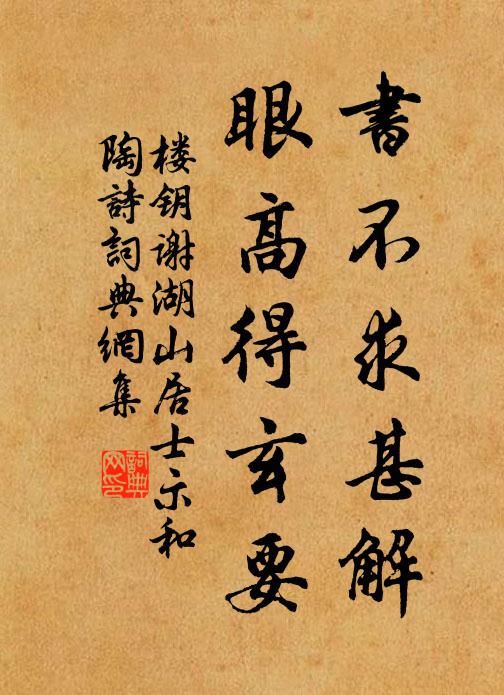 書不求甚解
眼高得玄要
楼钥谢湖山居士示和
陶詩詞典網集
詞典網印